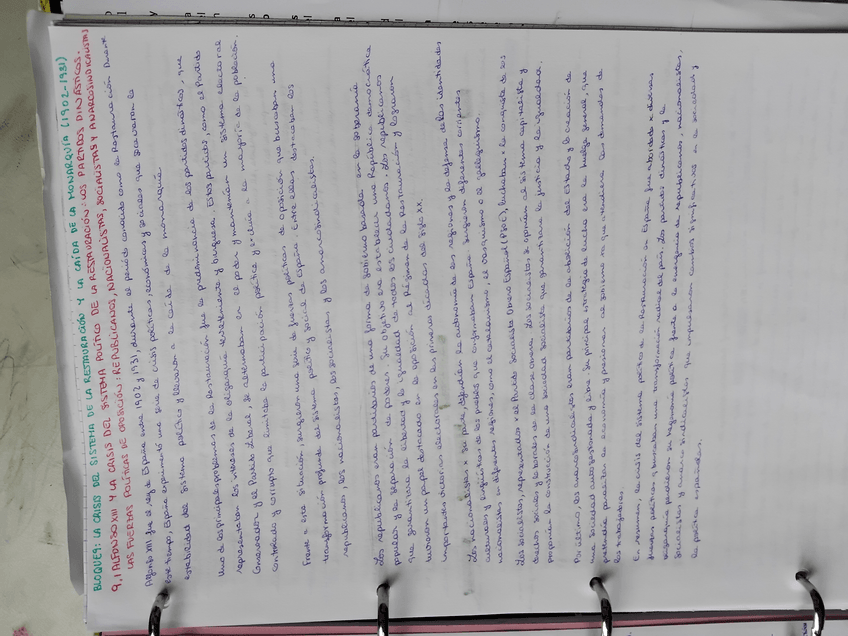 BLOQUE 9: LA CRISIS DEL SISTEMA DE LA RESTAURACIÓN Y LA CAÍDA DE LA MONARQUÍA (1902-1931)
9.1 ALFONSO XIII Y LA CRISIS DEL SISTEMA POLÍTICO DE LA RESTAURACIÓN: LOS PARTIDOS DINÁSTICOS.
LAS FUERZAS POLÍTICAS DE OPOSICIÓN: REPUBLICANOS, NACIONALISTAS, SOCIALISTAS Y ANARCOSINDICALISTAS
Alfonso XIII fue el rey de España entre 1902 y 1931, durante el periodo conocido como la Restauración. Durante
este tiempo, España experimentó una serie de crisis políticas, económicas y sociales que socavaron la
estabilidad del sistema político y llevaron a la caída de la monarquía.
Uno de los principales problemas de la Restauración fue la predominancia de los partidos dinásticos, que
representaban los intereses de la oligarquía terrateniente y burguesa. Estos partidos, como el Partido
Conservador y el Partido Liberal, se alternaban en el poder y mantenían un sistema electoral
controlado y corrupto que limitaba la participación política y excluía a la mayoría de la población.
Frente a esta situación, surgieron una serie de fuerzas políticas de oposición que buscaban una
transformación profunda del sistema político y social de España. Entre ellas destacaban los
republicanos, los nacionalistas, los socialistas y los anarcosindicalistas.
Los republicanos eran partidarios de una forma de gobierno basada en la soberanía
popular y la separación de poderes. Su objetivo era establecer una República democrática
que garantizara la libertad y la igualdad de todos los ciudadanos. Los republicanos
tuvieron un papel destacado en la oposición al Régimen de la Restauración y lograron
importantes victorias electorales en las primeras décadas del siglo XX.
Los nacionalistas x su parte, defendían la autonomía de las regiones y la defensa de las identidades
culturales y lingüísticas de los pueblos que conformaban España. Surgieron diferentes corrientes
nacionalistas en diferentes regiones, como el catalanismo, el vasquismo o el galleguismo.
Los socialistas, representados x el Partido Socialista Obrero Español (PSOE), luchaban x la conquista de los
derechos sociales y laborales de la clase obrera. Los socialistas se oponían al sistema capitalista y
proponían la construcción de una sociedad socialista que garantizara la justicia y la igualdad.
Por último, los anarcosindicalistas eran partidarios de la abolición del Estado y la creación de
una sociedad autogestionada y libre. Su principal estrategia de lucha era la huelga general, que
pretendía paralizar la economía y presionar al gobierno xa que atendiera las demandas de
los trabajadores.
En resumen, la crisis del sistema político de la Restauración en España fue abordada x diversas
fuerzas políticas, buscaban una transformación radical del país. Los partidos dinásticos y la
oligarquía perdieron su hegemonía política frente a la emergencia de republicanos, nacionalistas,
socialistas y anarcosindicalistas, que impulsaron cambios significativos en la sociedad y
la política españolas.